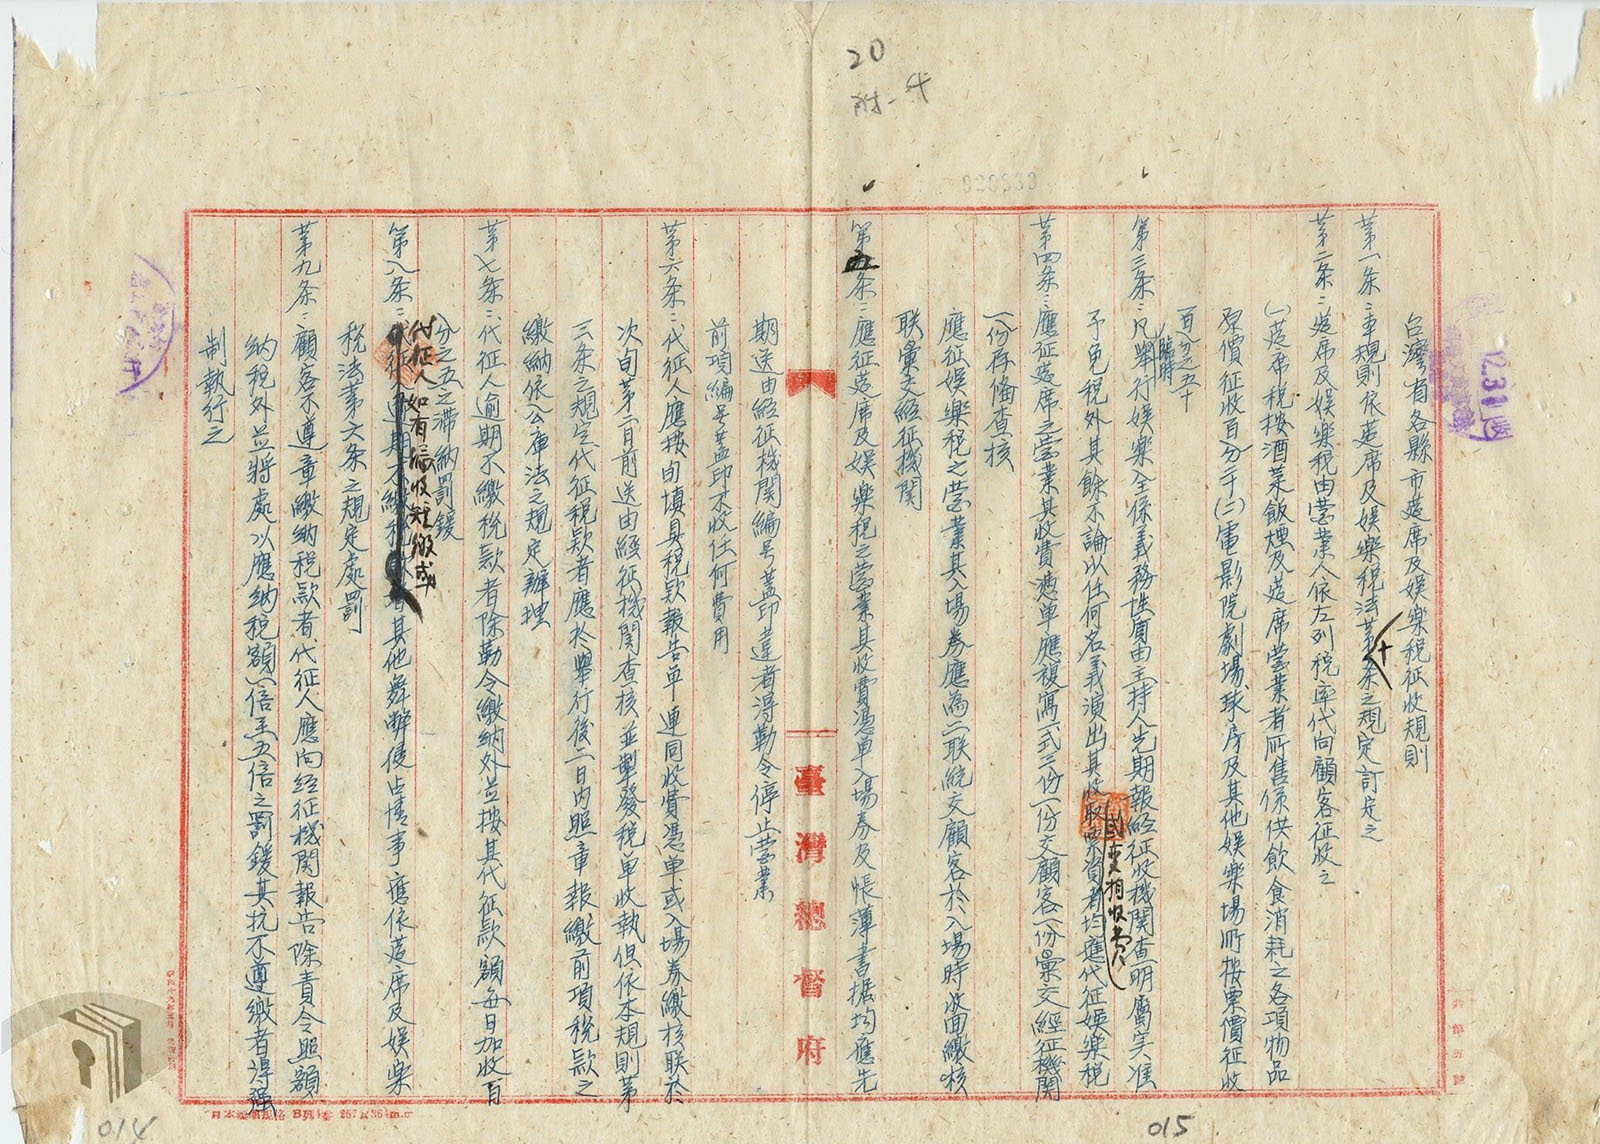 20
附-4
020533
12.31
台灣省各縣市莚席及娛樂税征收規則
第一条：本規則依莚席及娛樂税法第十条之規定訂定之
第二条：莚席及娛樂税由营業人依左列税率代向顧客征收之
(一)莚席税按酒菜飯烟及莚席营業者所售係供飲食消耗之各項物品
原價征收百分之十(二)電影院劇場球房及其他娛樂場所按票價征收
百分之五十
第三条：凡臨時舉行娛樂全係義務性質由主持人先期報經征收機関查明屬实准
予免税外其餘不論以任何名義演出其收取票資者或变相收费均應代征娛樂税
第四条：應征莚席之营業其收費憑单應複寫一式三份一份交顧客一份彙交經征機関
一份存俻查核
應征娛樂税之营業其入場券應為二联統交顧客於入場時收回繳核
联彙交經征機関
第五条：應征莚席及娛樂税之营業其收費憑单入場券及帳薄書据均應先
期送由經征機関編号蓋印違者得勒令停止营業
前項編号蓋印不收任何費用
第六条：代征人應按旬填具税款報告单連同收費憑单或入場券繳核联於
次旬第二日前送由經征機関查核並掣發税单收執但依本規則第
三条之規定代征税款者應於舉行後二日内照章報繳前項税款之
繳納依公庫法之規定辦理
第七条：代征人逾期不繳税款者除勒令繳納外並按其代征款額每日加收百
分之五之滞納罰鍰
第八条：代征人如有匿收短繳或其他舞弊侵占情事應依莚席及娛樂
税法第六条之規定處罰
第九条：顧客不遵章繳納税款者代征人應向經征機関報告除責令照額
納税外並將處以應納税額一倍至五倍之罰鍰其抗不遵繳者得强
制執行之
臺灣總督府
日本標準規格 B列4番 257×364m.m
014
015